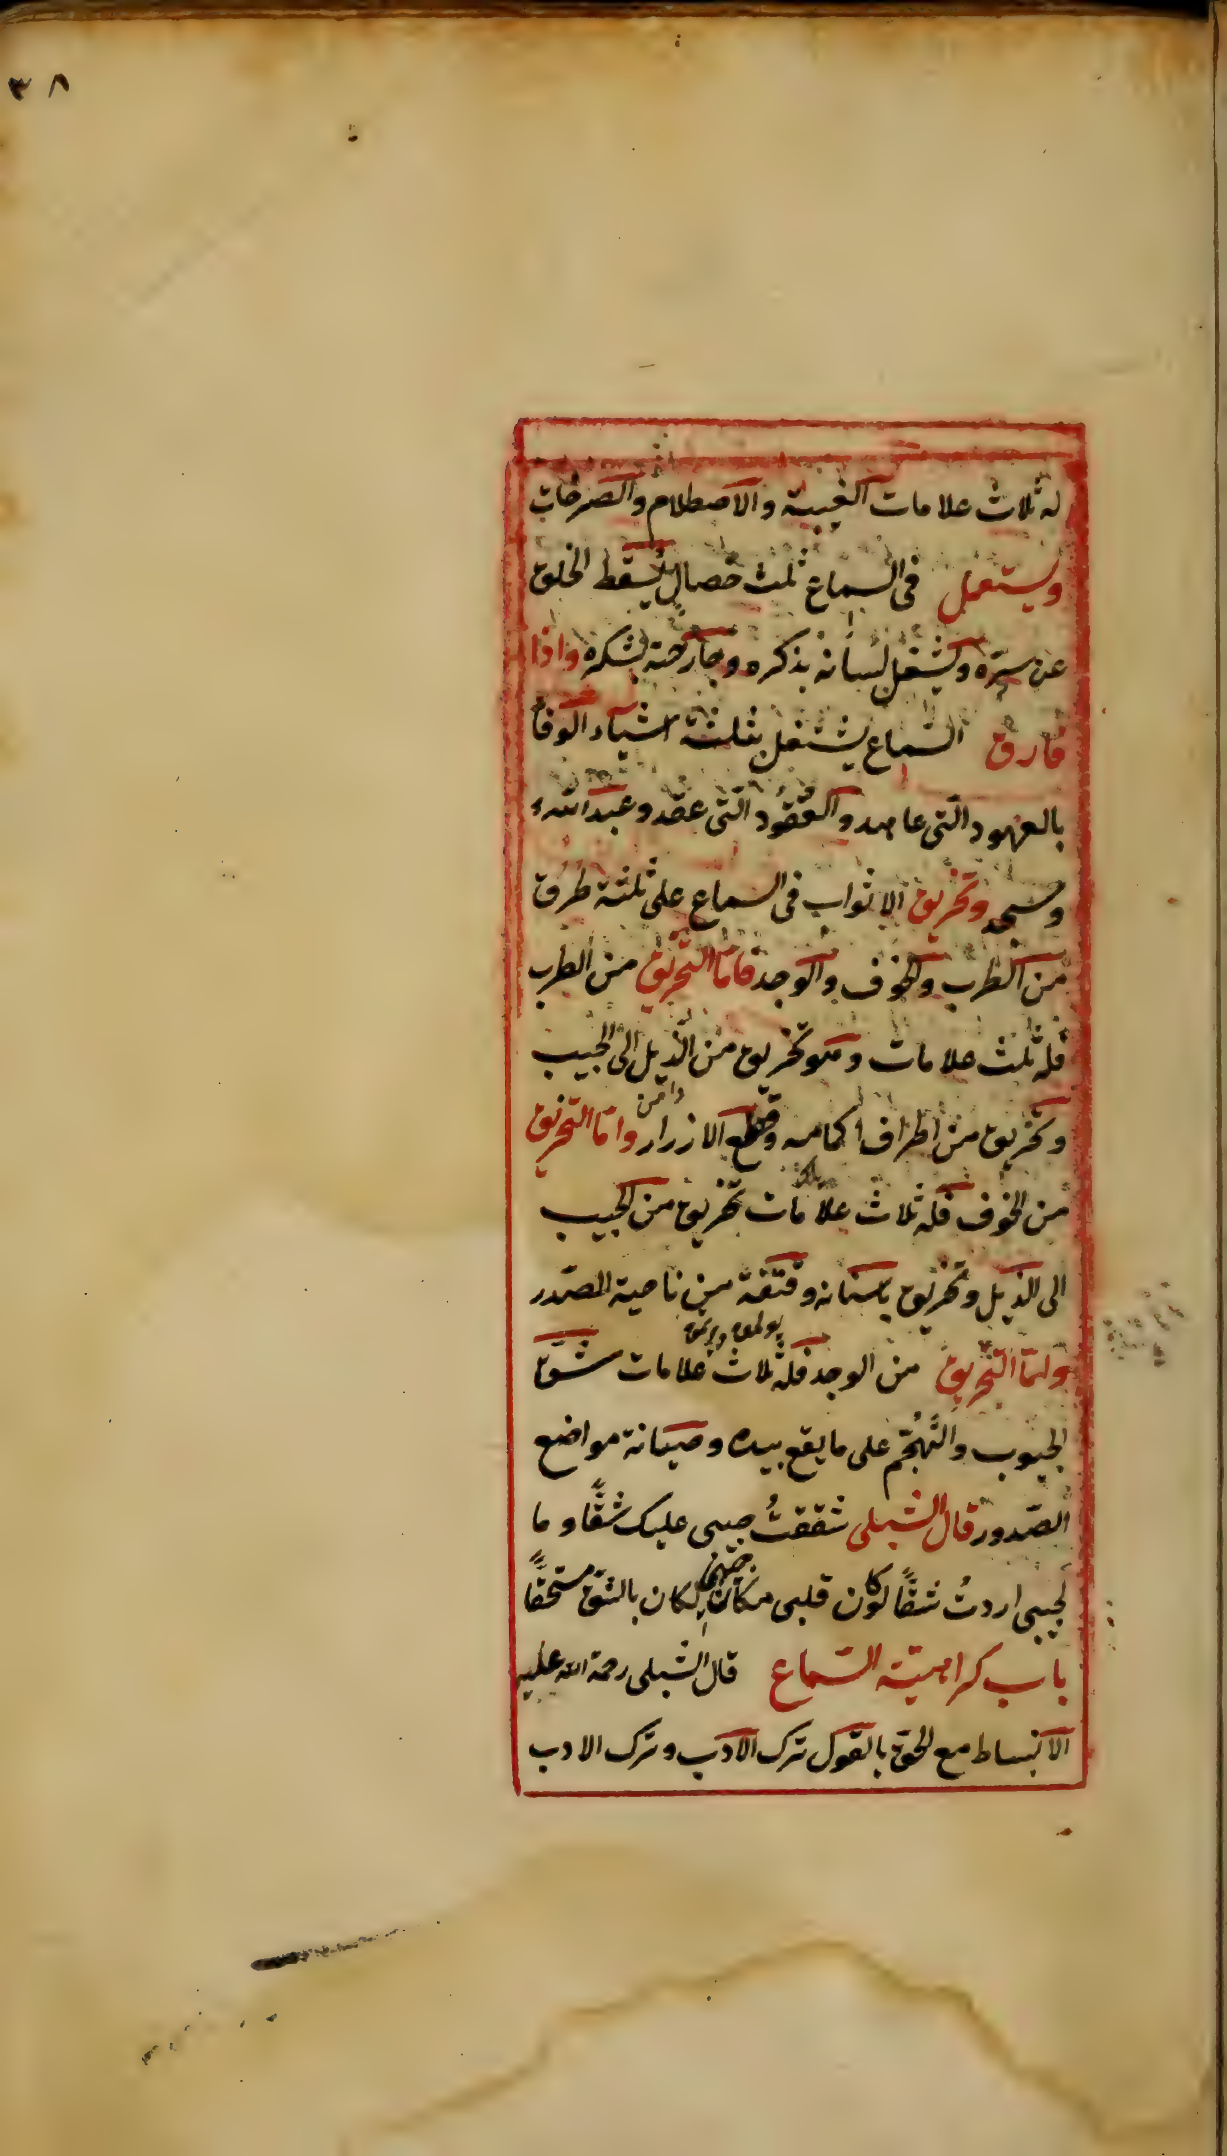 ٣٨
له ثلاث علامات الغيبة والاصطلام والصرخات
ويستعمل فى السماع ثلث خصال يسقط الخلق
عن سره ويشغل لسانه بذكره وجارحته بشكره واذا
فارق السماع يشتغل بثلثة اشياء الوفا
بالعهود التى عاهد والعقود التى عقد وعبد الله
وسجد وتخريق الاثواب فى السماع على ثلثة طرق
من الطرب والخوف والوجد فاما التخريق من الطرب
فله ثلث علامات وهو تخريق من الذيل الى الجيب
وتخريق من اطراف اكمامه وقطع الازرار واما التخريق
دامن
من الخوف فله ثلاث علامات تخريق من الجيب
الى الذيل وتخريق باسنانه وفتقة من ناحية الصدر
واما التخريق من الوجد فله ثلاث علامات شق
الجيوب والتهجم على ما يقع بيده وصيانة مواضع
الصدور قال الشبلى شققتُ جيبى عليك شقًا وما
لجيبى اردتُ شقًا لو كان قلبى مكان جيبى لكان بالشق مستحقًا
باب كراهية السماع قال الشبلى رحمة الله عليه
الانبساط مع الحق بالقول ترك الادب وترك الادب